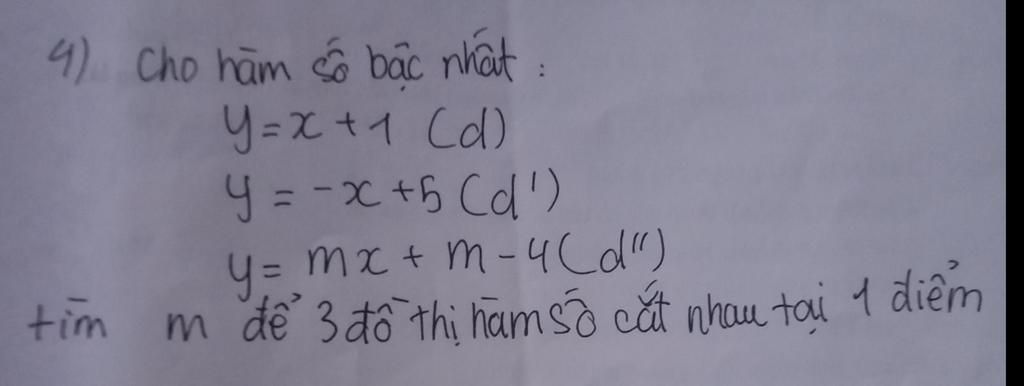 4) Cho hàm số bậc nhất :
y = x + 1 (d)
y = -x + 5 (d')
y = mx + m - 4 (d'')
tìm m để 3 đồ thị hàm số cắt nhau tại 1 điểm